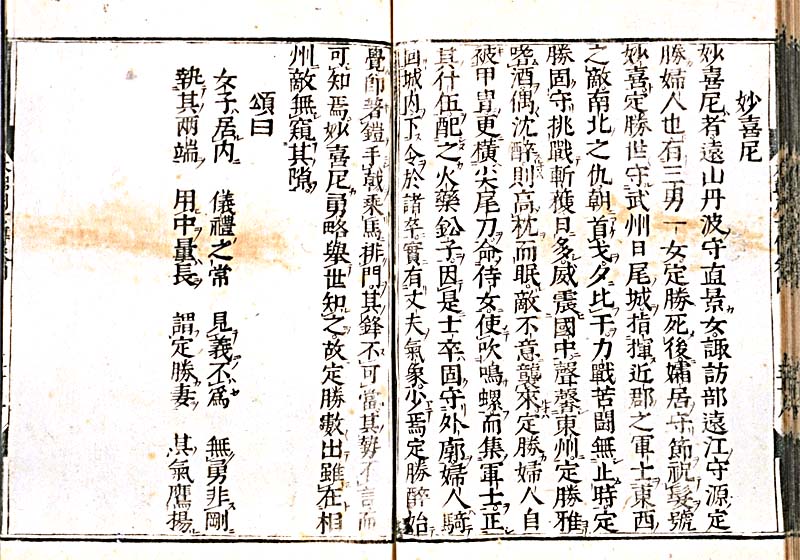 妙喜尼
妙喜尼者遠山丹波守直景女諏訪部遠江守源定
勝婦人也有三男一女定勝死後孀居守節祝髮號
妙喜定勝世守武州日尾城指揮近郡之軍士東西
之敵南北之仇朝首戈夕比干力戰苦鬪無止時定
勝固守挑戰斬獲日多威震國中聲馨東州定勝雅
嗜酒偶沈醉則高枕而眠敵不意襲來定勝婦人自
被甲冑更橫尖尾刀命侍女使吹鳴螺而集軍士正
其什伍配之火藥鈆子因是士卒固守外廓婦人騎
回城內下令於諸卒實有丈夫氣象少焉定勝醉始
覺師著鎧手戟乘馬排門其鋒不可當其勢不言而
可知焉妙喜尼勇略舉世知之故定勝數出雖在相
州敵無窺其隙
頌曰
女子居內 儀禮之常 見義不爲 無勇非剛
執其兩端 用中量長 謂定勝妻 其氣鷹揚